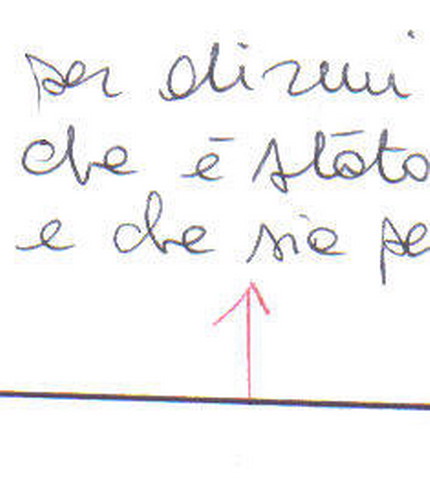 per dirmi
che è stato
e che sia pe